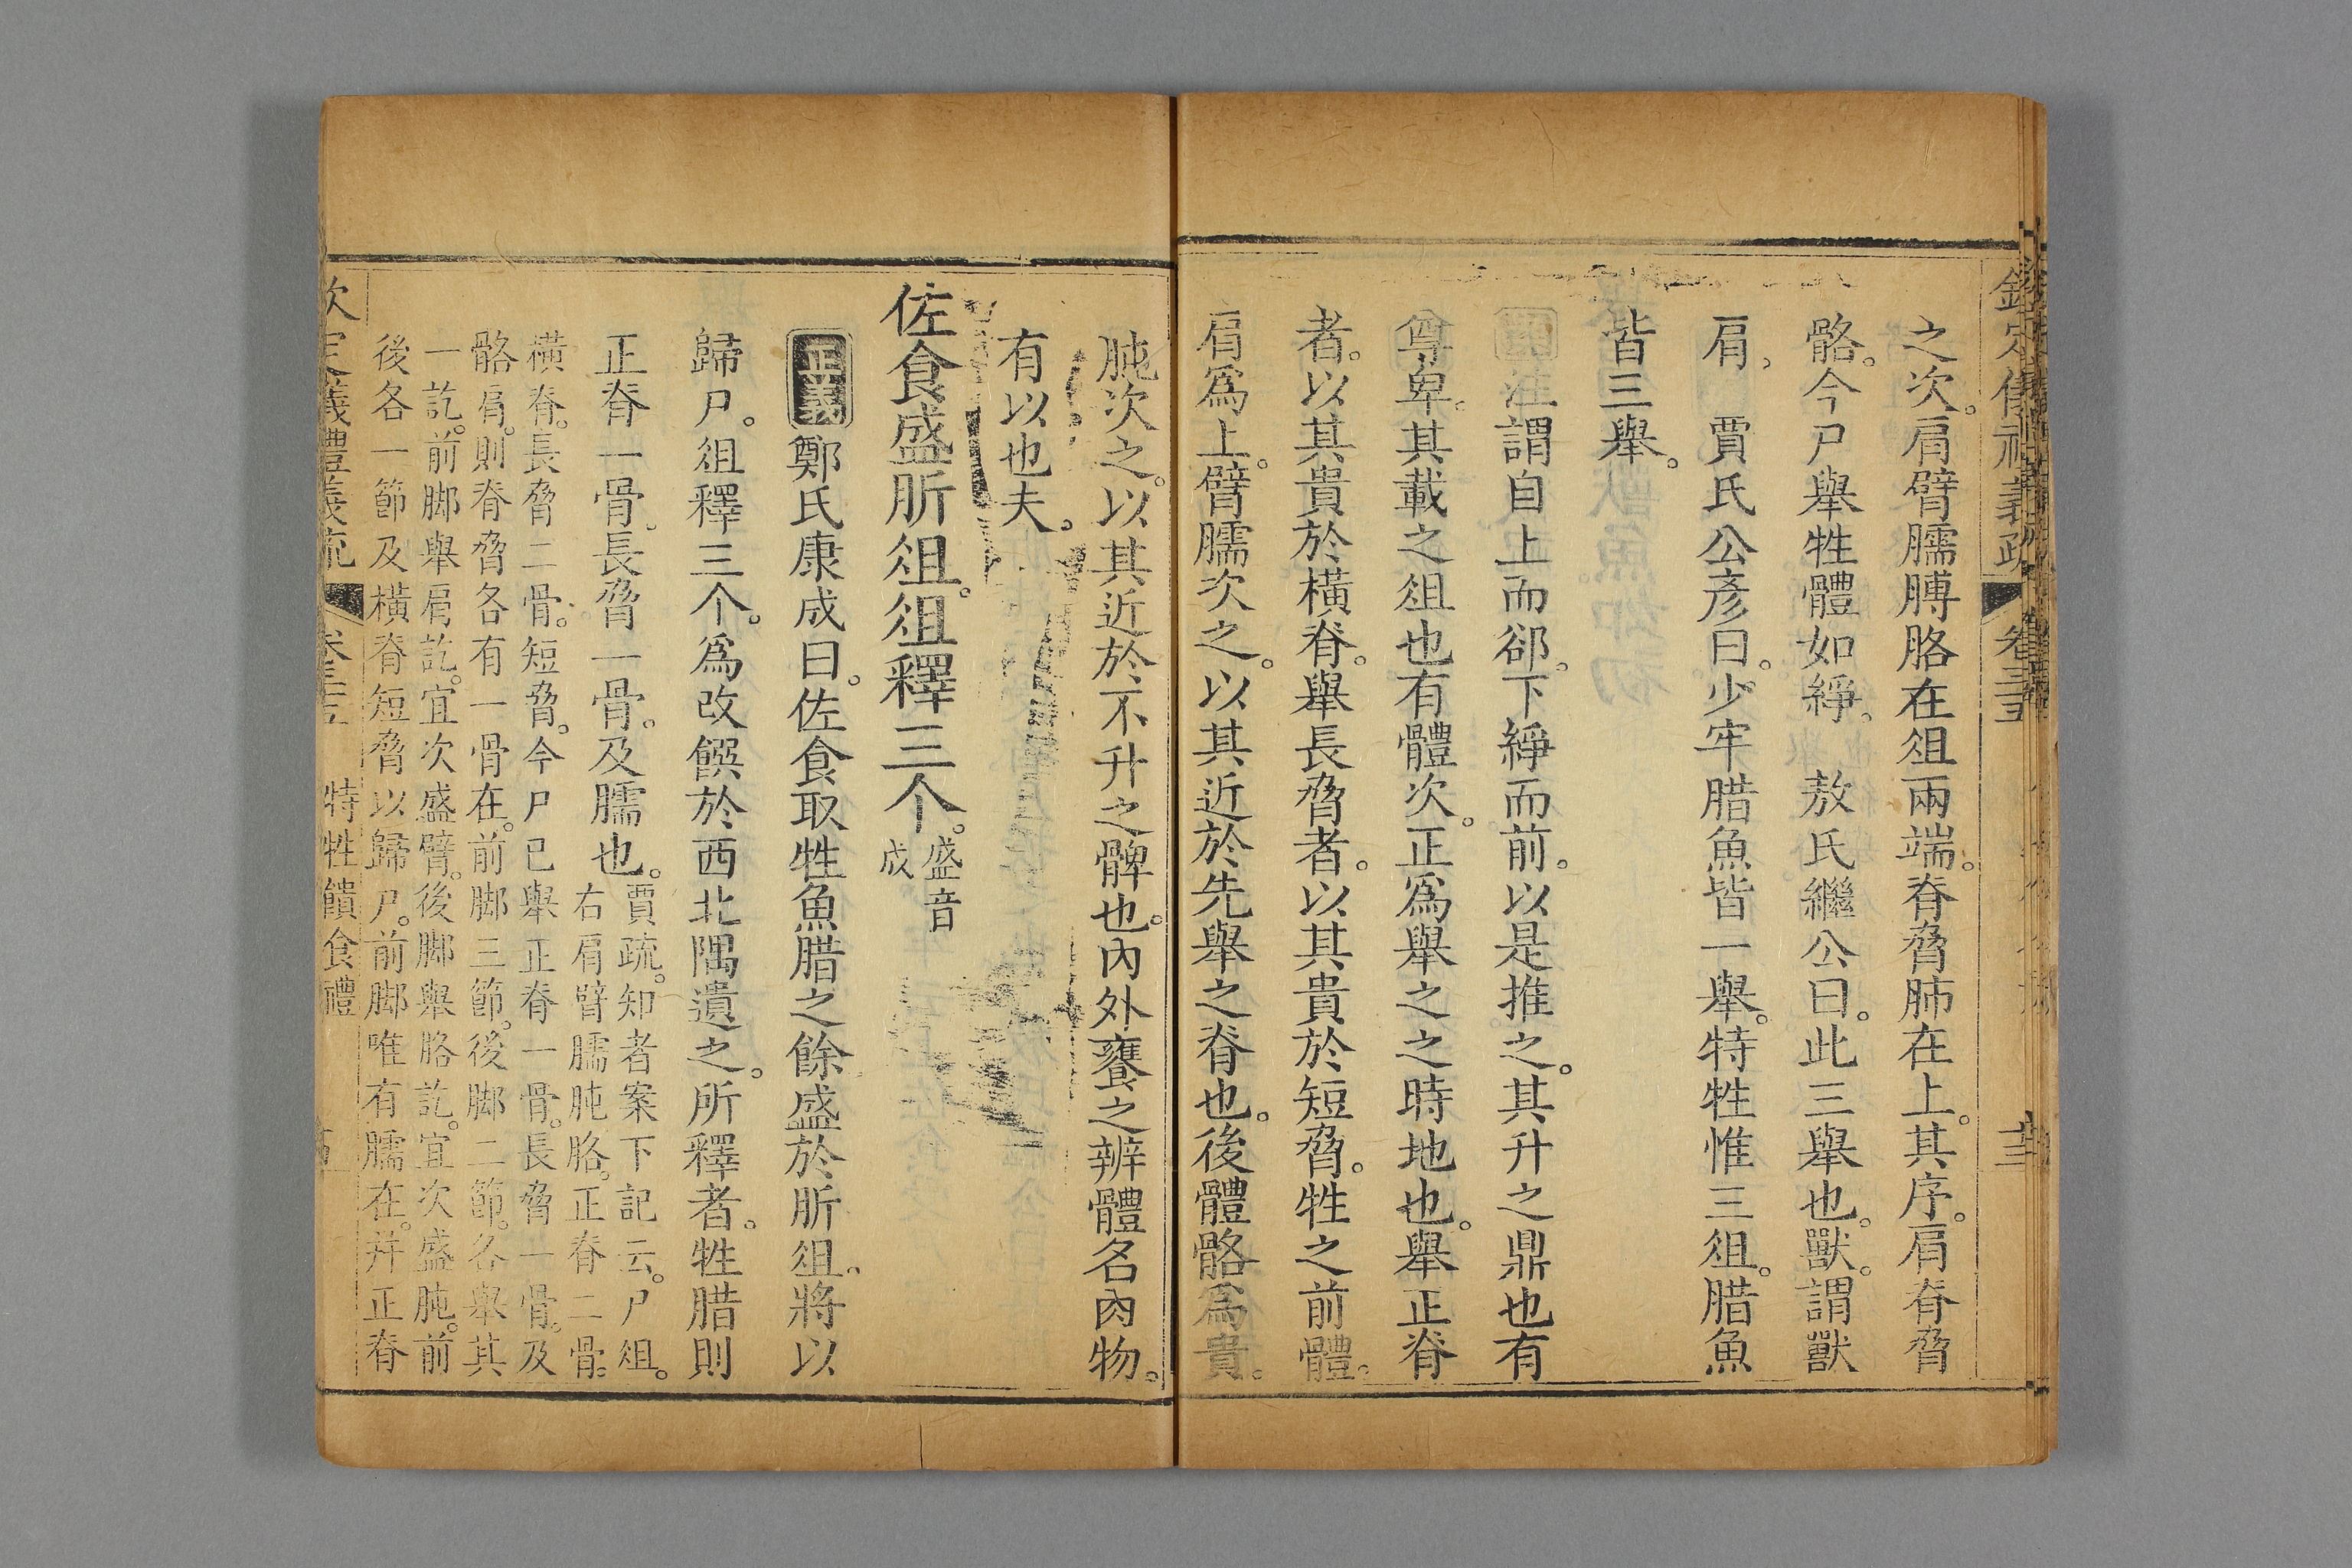 之次。肩臂臑膊胳在俎兩端。脊脅肺在上。其序。肩脊脅
骼。今尸舉牲體如綪。　敖氏繼公曰。此三舉也。獸。謂獸
肩、　賈氏公彥曰。少牢腊魚皆一舉。特牲惟三俎。腊魚
皆三舉。
注謂自上而郤。下綪而前。以是推之。其升之鼎也有
尊卑。其載之俎也有體次。正爲舉之之時地也。舉正脊
者。以其貴於橫脊。舉長脅者。以其貴於短脅。牲之前體。
肩爲上。臂臑次之。以其近於先舉之脊也。後體骼爲貴。
肫次之。以其近於不升之髀也。內外饔之辨體名肉物。
有以也夫。
佐食盛肵俎。俎釋三个。盛音
成
正義 鄭氏康成曰。佐食取牲魚腊之餘盛於肵俎。將以
歸尸。俎釋三个。爲改饌於西北隅遺之。所釋者。牲腊則
正脊一骨、長脅一骨。及臑也。賈疏。知者案下記云。尸俎。
右肩臂臑肫胳。正脊二骨。
橫脊。長脅二骨。短脅。今尸已舉正脊一骨。長脅一骨。及
骼肩。則脊脅各有一骨在。前脚三節。後脚二節。各舉其
一訖。前脚舉肩訖。宜次盛臂。後脚舉胳訖。宜次盛肫。前
後各一節及橫脊短脅以歸尸。前脚唯有臑在。幷正脊
特牲饋食禮